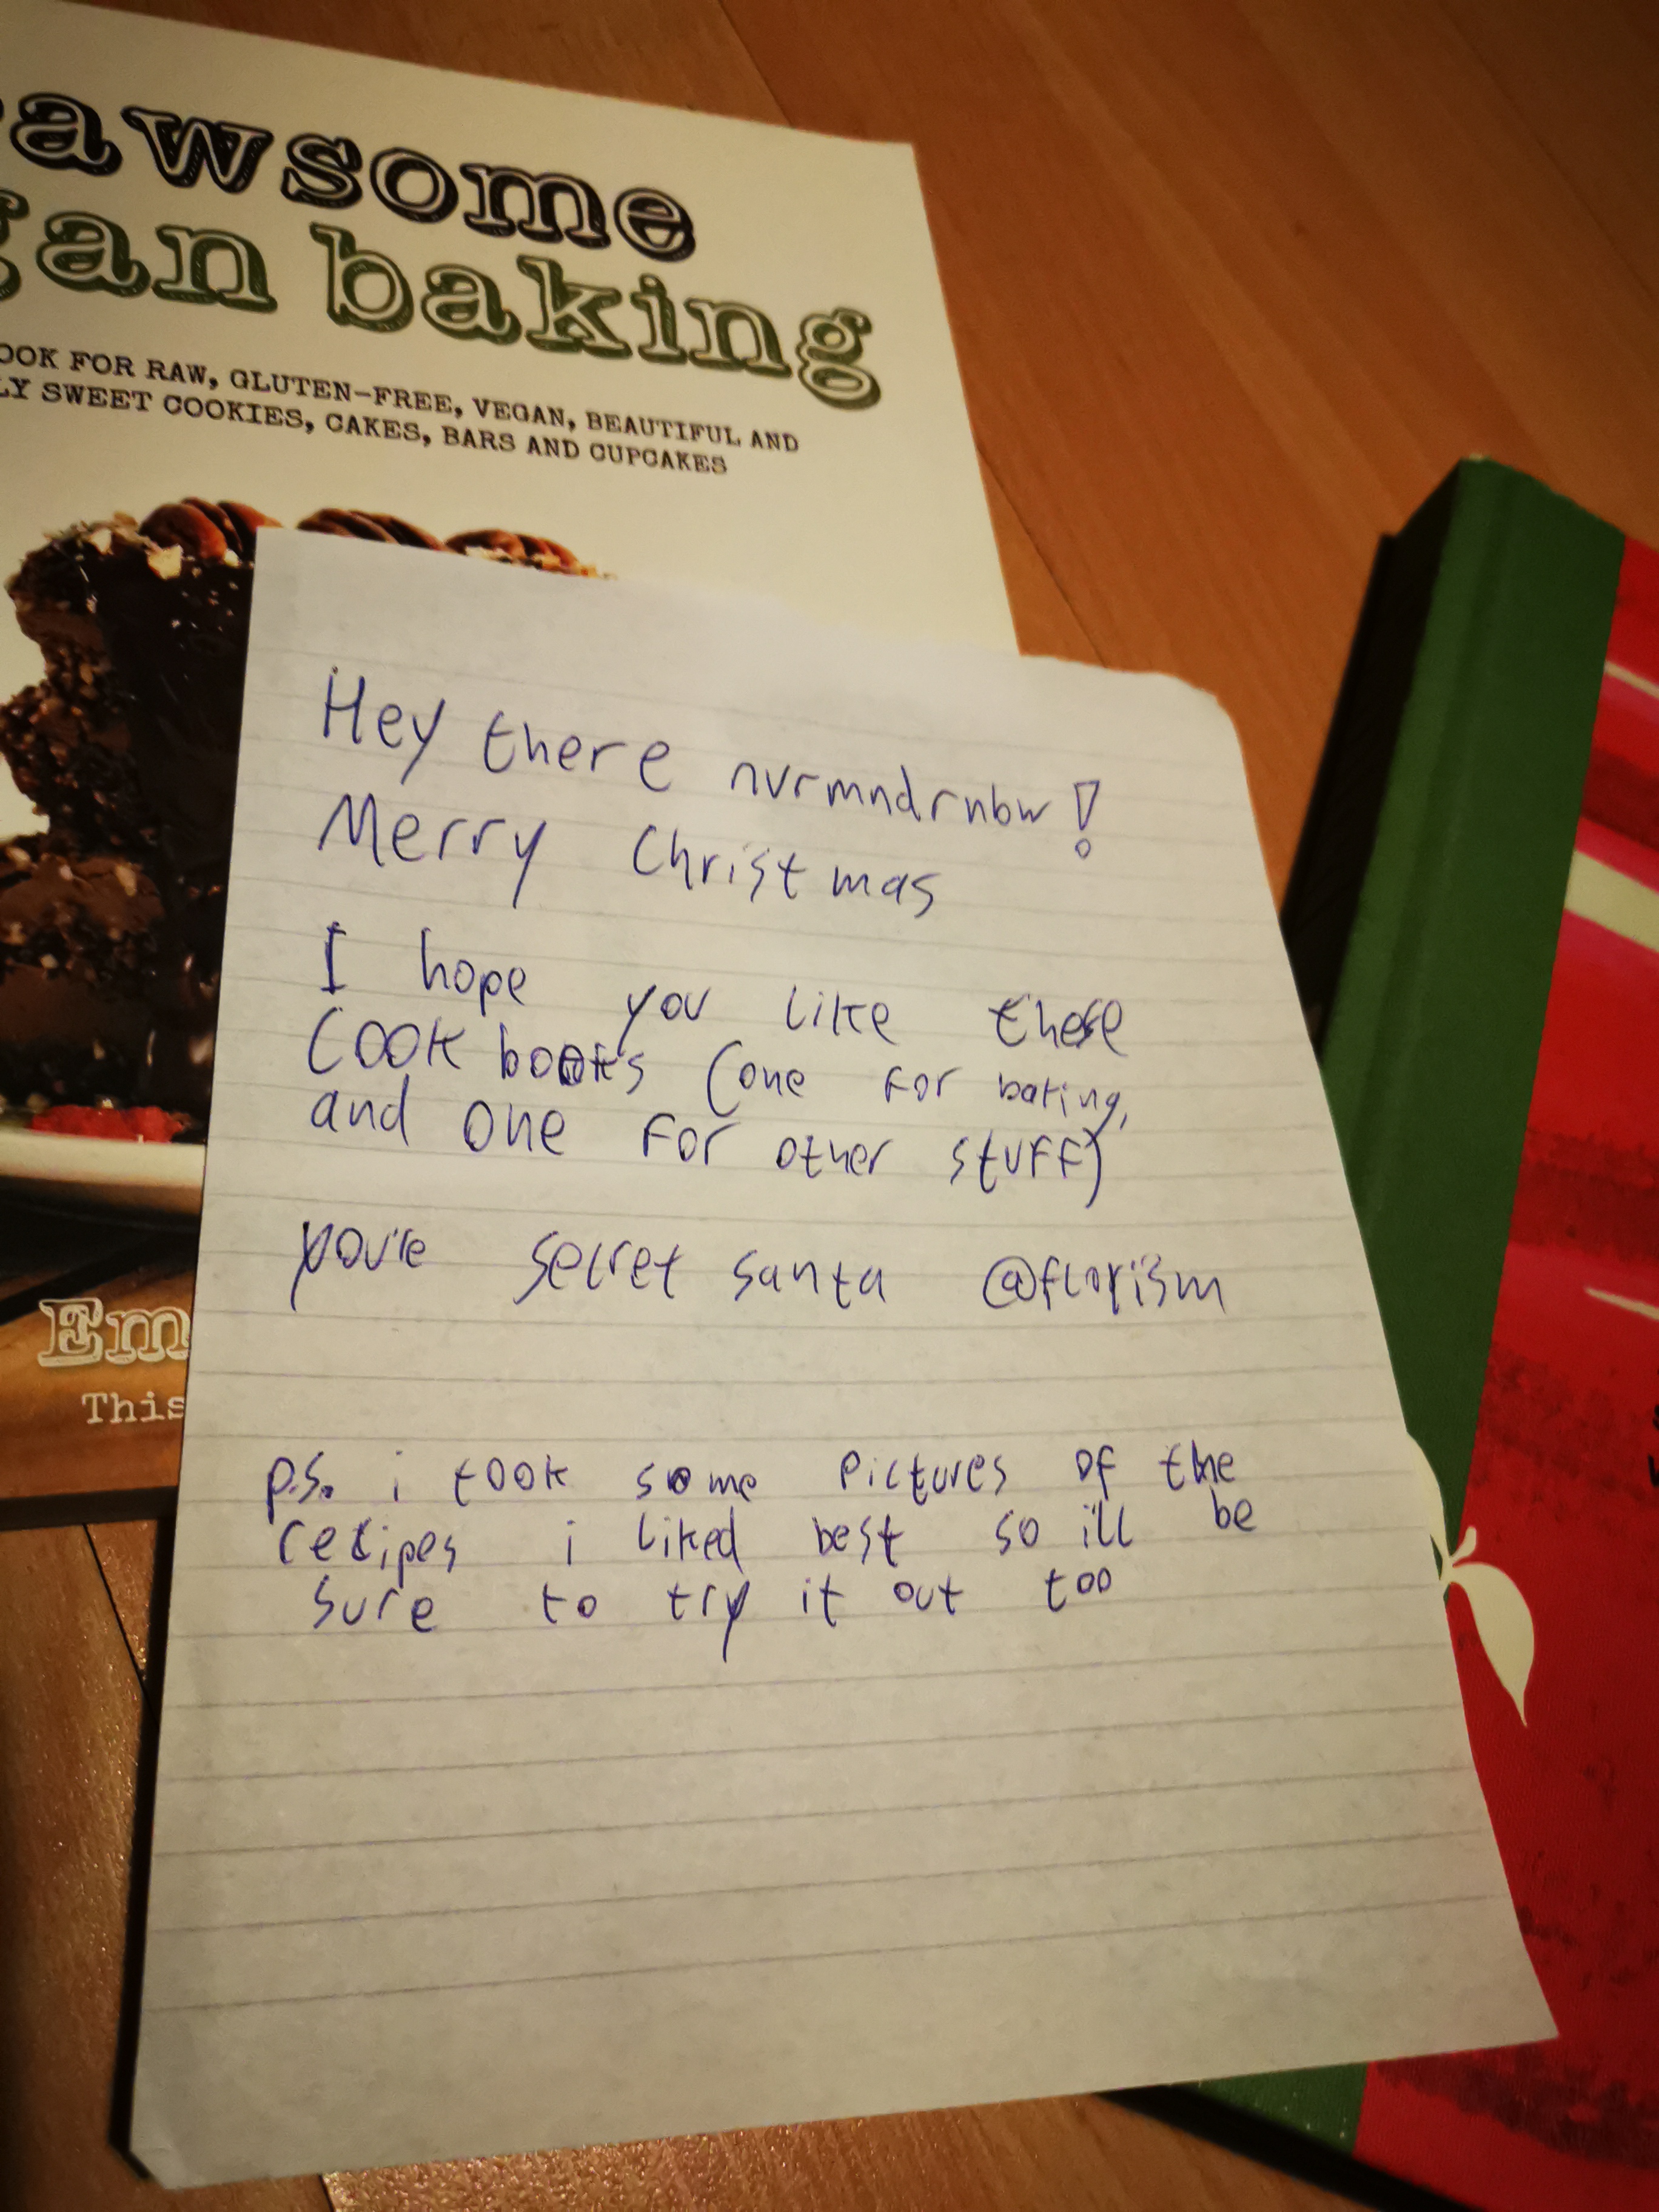 awsome
gan baking
OOK FOR RAW, GLUTEN-FREE, VEGAN, BEAUTIFUL AND
LY SWEET COOKIES, CAKES, BARS AND CUPCAKES
Hey there nvrmndrnbw!
Merry Christmas
I hope you like these
Cook books (one for baking,
and one for other stuff)
you're secret santa @florism
Em
This
p.s. i took some pictures of the
recipes i liked best so ill be
sure to try it out too